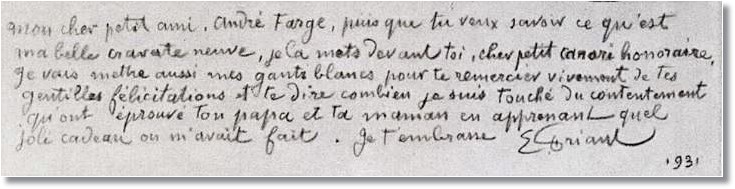 mon cher petit ami, André Farge, puis que tu veux savoir ce qu'est
ma belle cravate neuve, je la mets devant toi, cher petit canari honoraire,
Je vais mettre aussi mes gants blancs pour te remercier vivement de tes
gentilles félicitations et te dire combien je suis touché du contentement
qu'ont éprouvé ton papa et ta maman en apprenant quel
joli cadeau on m'avait fait. Je t'embrasse E Friant
1931